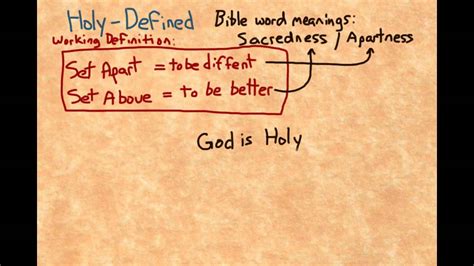 Holy-Defined
Bible word meanings:
Working Definition:
Sacredness / Apartness
Set Apart = to be diffent
Set Above = to be better
God is Holy